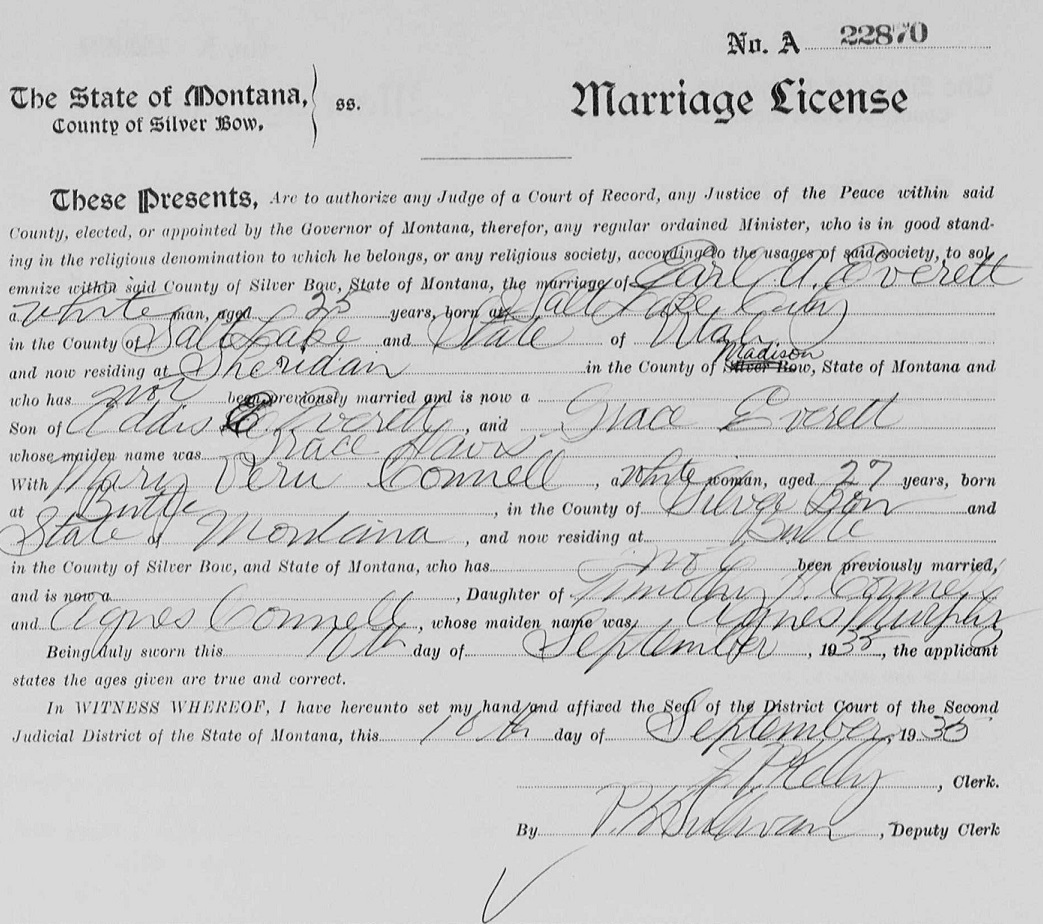 No. A 22870
The State of Montana, } ss.
County of Silver Bow.
Marriage License
These Presents, Are to authorize any Judge of a Court of Record, any Justice of the Peace within said
County, elected, or appointed by the Governor of Montana, therefor, any regular ordained Minister, who is in good stand-
ing in the religious denomination to which he belongs, or any religious society, according to the usages of said society, to sol-
emnize within said County of Silver Bow, State of Montana, the marriage of Earl A. Everett
a White man, aged 25 years, born at Salt Lake City
in the County of Salt Lake and State of Utah
and now residing at Sheridan in the County of Silver Bow, Madison State of Montana and
who has not been previously married and is now a
Son of Addis E. Everett, and Grace Everett
whose maiden name was Grace Haws
With Mary Veru Connell, a White woman, aged 27 years, born
at Butte, in the County of Silver Bow and
State of Montana, and now residing at Butte
in the County of Silver Bow, and State of Montana, who has not been previously married,
and is now a, Daughter of Timothy Connell
and Agnes Connell, whose maiden name was Agnes Murphy
Being duly sworn this 10th day of September, 1935, the applicant
states the ages given are true and correct.
In WITNESS WHEREOF, I have hereunto set my hand and affixed the Seal of the District Court of the Second
Judicial District of the State of Montana, this 10th day of September, 1935
J P Kelly, Clerk.
By P. Sullivan, Deputy Clerk